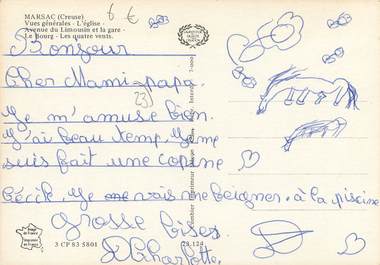 MARSAC (Creuse)
Vues générales - L'église -
Avenue du Limousin et la gare -
Le Bourg - Les quatre vents.
6 €
Bonjour
Cher Mami-papa.
23
Je m'amuse bien.
J'ai beau temp, Je me
suis fait une copine
Cécile, Je me vais me beigner à la piscine
Grosse bises
Charlotte
3 CP 83 5801
23.124